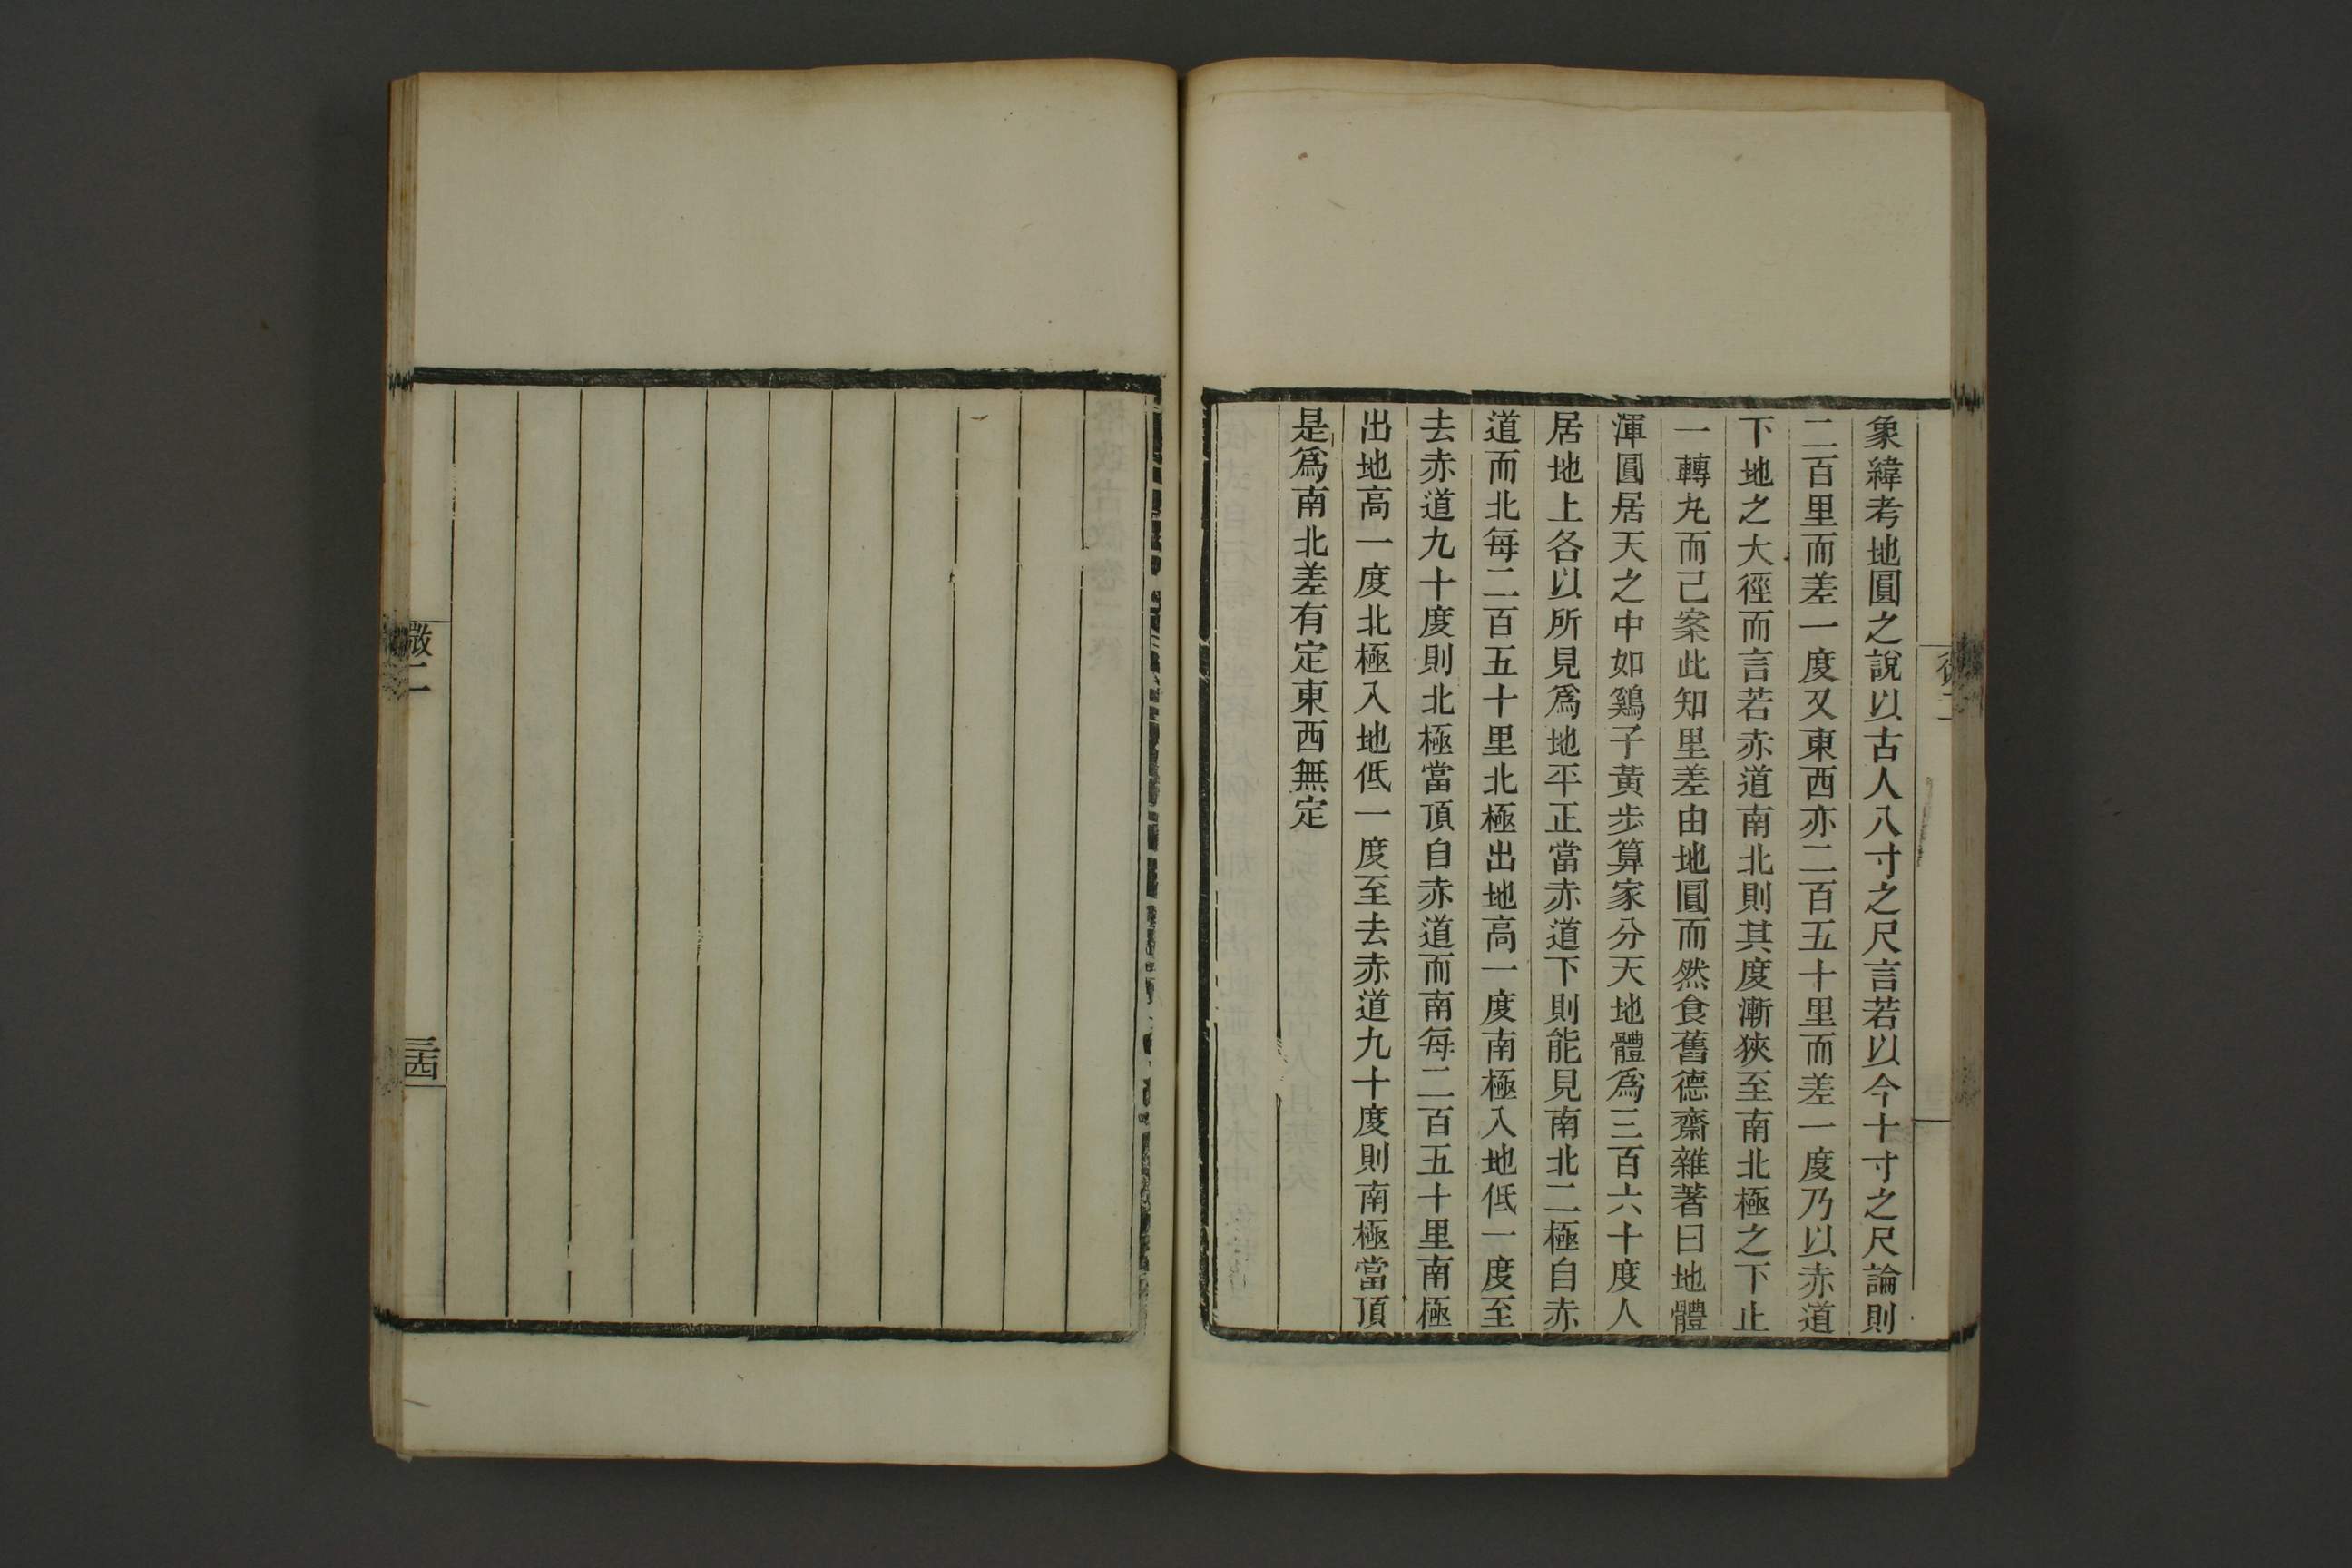 象緯考地圓之說以古人八寸之尺言若以今十寸之尺論則
二百里而差一度又東西亦二百五十里而差一度乃以赤道
下地之大徑而言若赤道南北則其度漸狹至南北極之下止
一轉丸而己案此知里差由地圓而然食舊德齋雜著曰地體
渾圓居天之中如鷄子黃步算家分天地體爲三百六十度人
居地上各以所見爲地平正當赤道下則能見南北二極自赤
道而北每二百五十里北極出地高一度南極入地低一度至
去赤道九十度則北極當頂自赤道而南每二百五十里南極
出地高一度北極入地低一度至去赤道九十度則南極當頂
是爲南北差有定東西無定
徵二
三四